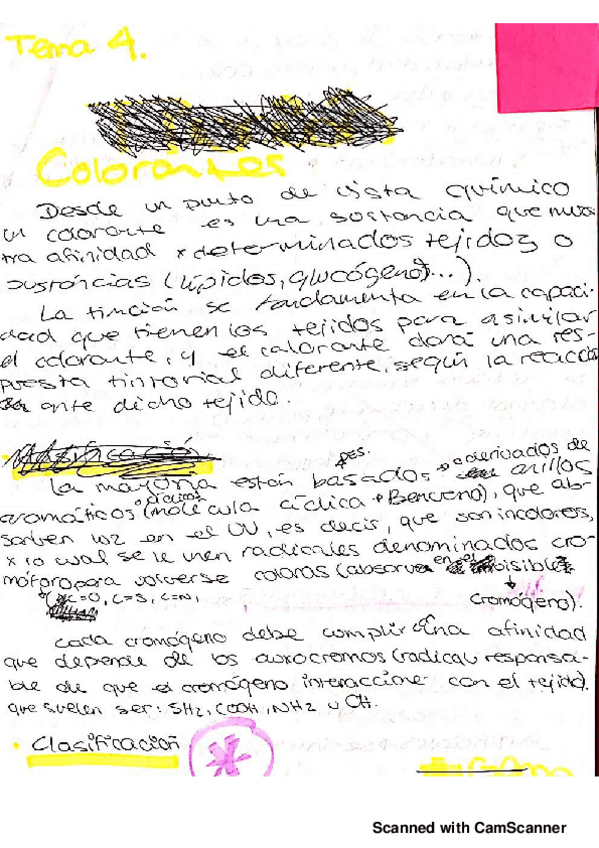 Tema 4.
Colorantes
Desde un punto de vista químico
un colorante es una sustancia que mues
tra afinidad x determinados tejidos o
sustancias (lípidos, glucógeno, ...).
La tinción se fundamenta en la capaci-
dad que tienen los tejidos para asimilar
el colorante, y el colorante dará una res-
puesta tintorial diferente, según la reacción
ante dicho tejido.
Clasificación
La mayoría están basados en derivados de anillos
aromáticos (molécula cíclica + Benceno), que ab-
sorben luz en el UV, es decir, que son incoloros,
x lo cual se le unen radicales denominados cro-
móforo para volverse coloras (absorve en el visible
(C=O, C=S, C=N,
cromógeno).
Cada cromógeno debe cumplir una afinidad
que depende de los auxocromos (radical responsa-
ble de que el cromógeno interaccione con el tejido).
que suelen ser: SH2, COOH, NH2 u OH.
· Clasificación
Scanned with CamScanner